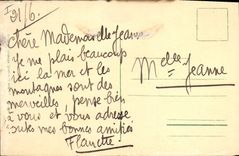 Chère Mademoiselle Jeanne
je me plais beaucoup
ici la mer et les
montagnes sont des
merveilles, pense bien
à vous et vous adresse
toutes mes bonnes amitiés
Melle Jeanne